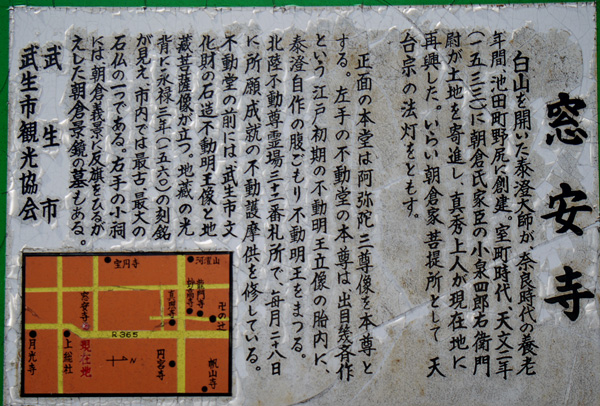 窓安寺
白山を開いた泰澄大師が、奈良時代の養老
年間、池田町野尻に創建。室町時代、天文二年
(一五三三)に朝倉氏家臣の小泉四郎右衛門
尉が土地を寄進し、真秀上人が現在地に
再興した。いらい朝倉家菩提所として 天
台宗の法灯をともす。
正面の本堂は阿弥陀三尊像を本尊と
する。左手の不動堂の本尊は、出目幾斉作
という江戸初期の不動明王立像の胎内に、
泰澄自作の腹ごもり不動明王をまつる。
北陸不動尊霊場三十二番札所で、毎月二十八日
に所願成就の不動護摩供を修している。
不動堂の前には、武生市文
化財の石造不動明王像と地
蔵菩薩像が立つ。地蔵の光
背に永禄三年(一五六〇)の刻銘
が見え、市内では最古、最大の
石仏の一つである。右手の小祠
には朝倉義景に反旗をひるが
えした朝倉景鏡の墓もある。
武生市
武生市観光協会
宝円寺
河濯山
龍門寺
妙高寺
真照寺
卍の辻
窓安寺
現在地
R365
N
月光寺
上総社
円宮寺
帆山寺